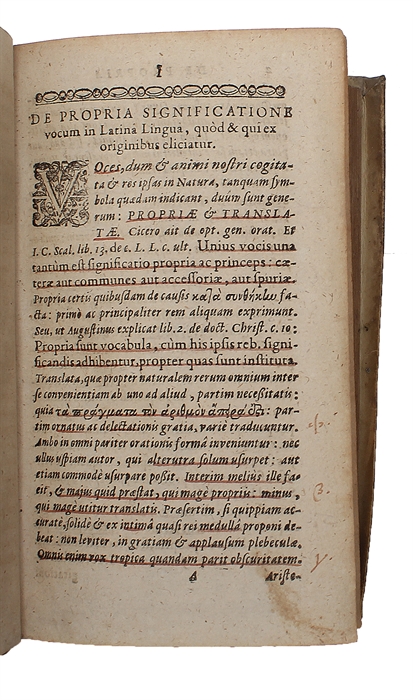 I
DE PROPRIA SIGNIFICATIONE
vocum in Latina Lingua, quòd & qui ex
originibus eliciatur.
VOces, dum & animi nostri cogita-
ta & res ipsas in Natura, tanquam sym-
bola quædam indicant, duum sunt gene-
rum: PROPRIÆ & TRANSLA-
TÆ. Cicero ait de opt. gen. orat. Et
I. C. Scal. lib. 13. de c. L. L. c. ult. Unius vocis una
tantùm est significatio propria ac princeps: cæ-
teræ aut communes aut accessoriæ, aut spuriæ.
Propria certis quibusdam de causis καλὰ συνθήκων fa-
cta: primò ac principaliter rem aliquam exprimunt.
Seu, ut Augustinus explicat lib. 2. de doct. Christ. c. 10:
Propria sunt vocabula, cùm his ipsis reb. signi-
ficandis adhibentur, propter quas sunt instituta.
Translata, quæ propter naturalem rerum omnium inter
se convenientiam ab uno ad aliud, partim necessitatis:
quia τὰ πράγματα τὸν ἀριθμὸν ἄπειρά ἐστι: par-
tim ornatus ac delectationis gratia, variè traducuntur.
Ambo in omni pariter orationis formâ inveniuntur: nec
ullus uspiam autor, qui alterutra solum usurpet: aut
etiam commodè usurpare possit. Interim melius ille fa-
cit, & majus quid præstat, qui magè propriis: minus,
qui magè utitur translatis. Præsertim, si quippiam ac-
curatè, solidè & ex intimâ quasi rei medullâ proponi de-
beat: non leviter, in gratiam & applausum plebeculæ.
Omnis enim vox tropica quandam parit obscuritatem.
A Ariste-